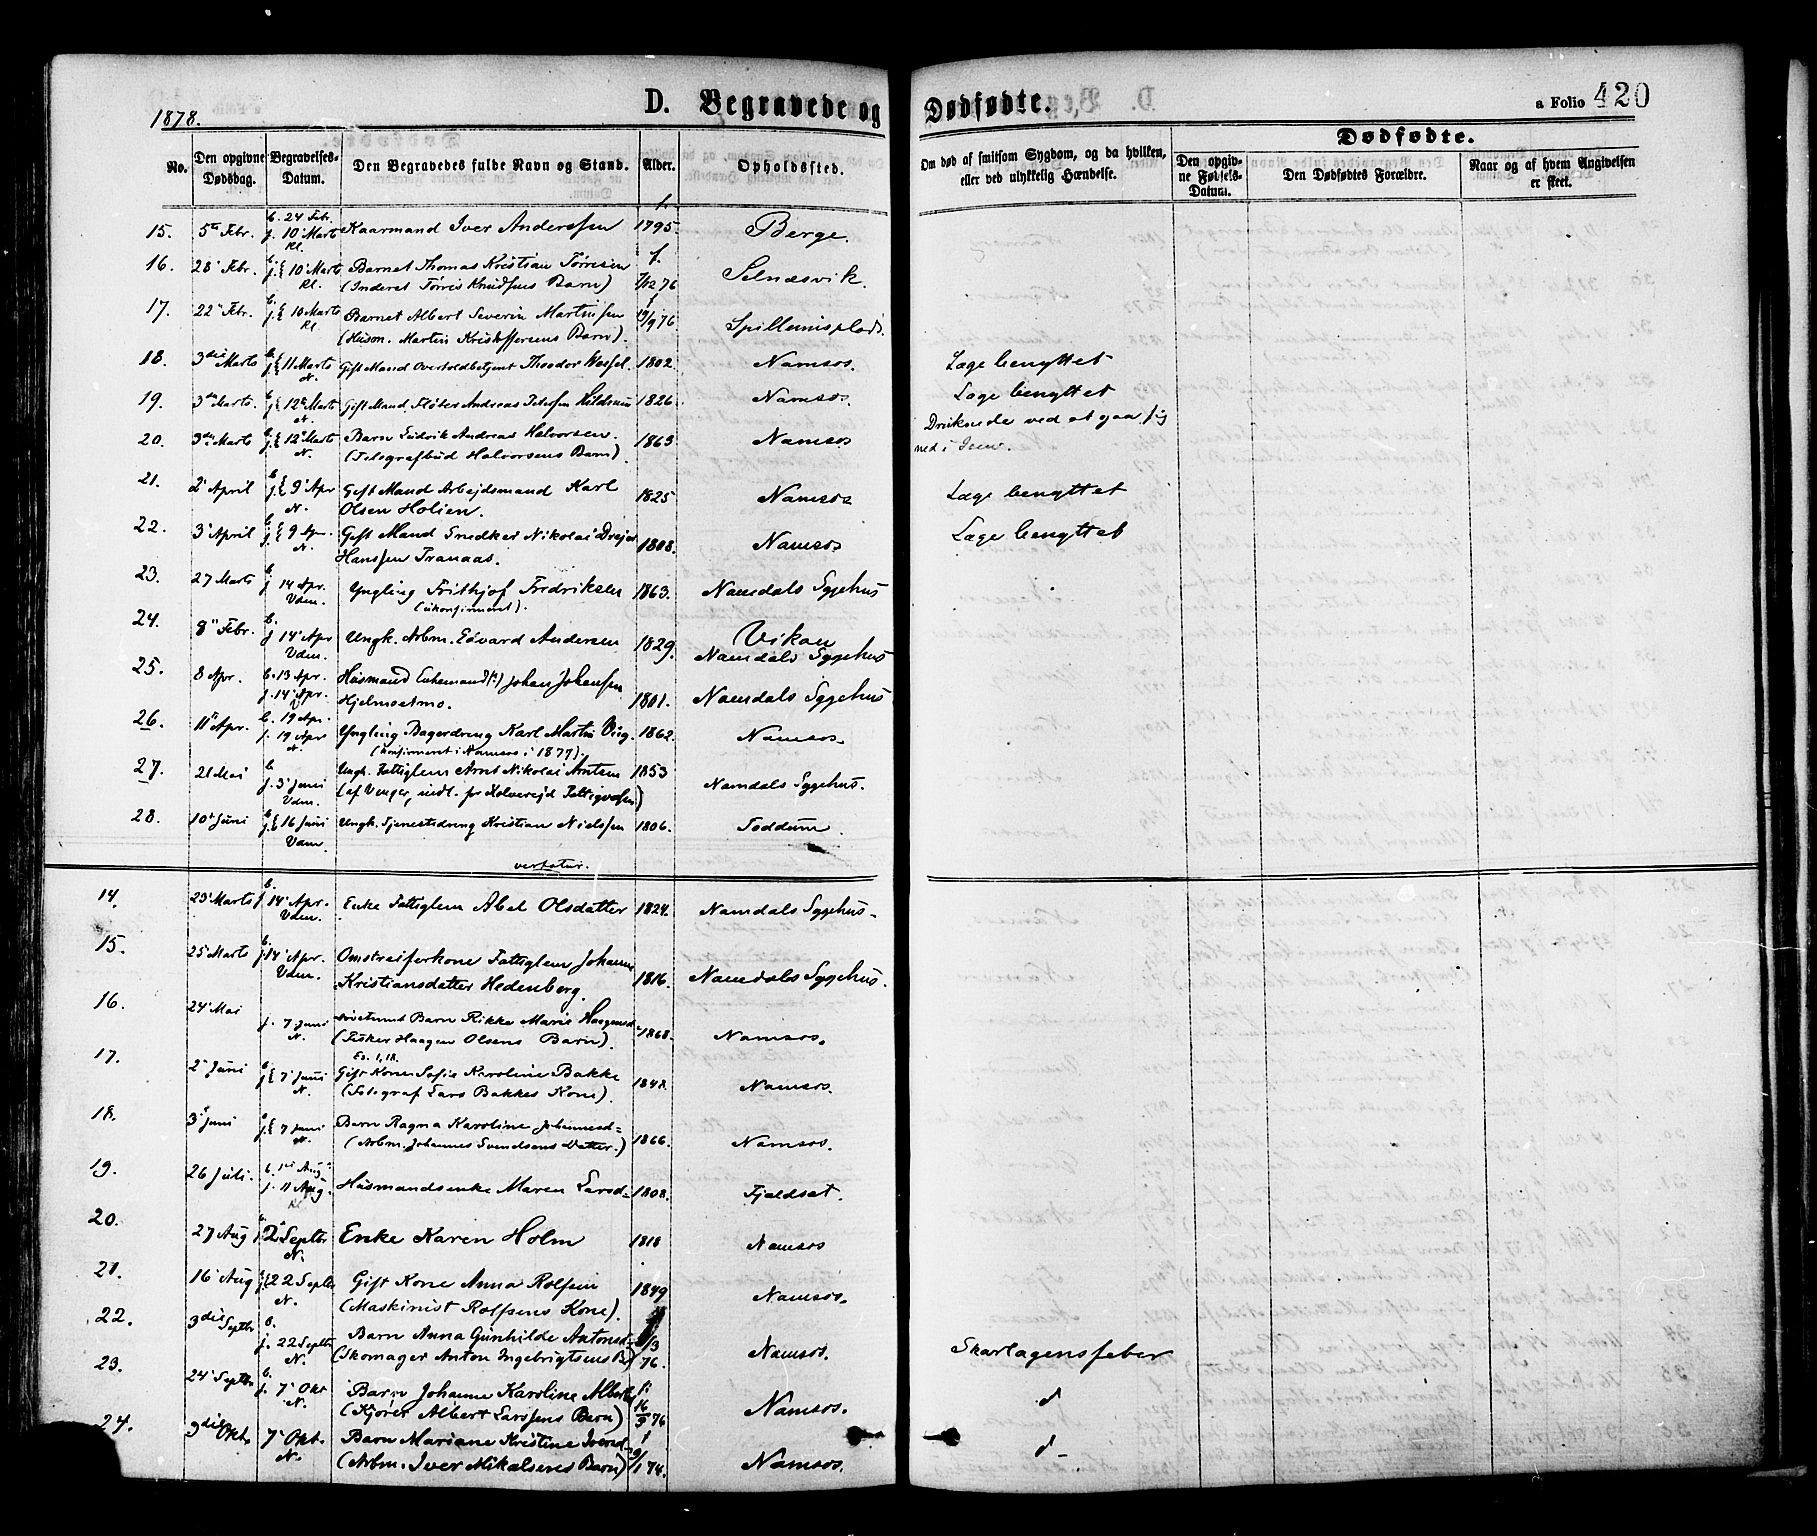 1878.
D. Begravede og Dødfødte.
a Folio 420
No.
Den opgivne Dødsdag.
Begravelses-Datum.
Den Begravedes fulde Navn og Stand.
Alder.
Opholdssted.
Om død af smitsom Sygdom, og da hvilken, eller ved ulykkelig Hændelse.
Dødfødte.
Den opgivne Fødsels-Datum.
Den Dødfødtes Forældre.
Naar og af hvem Angivelsen er skeet.
15. 5te Febr. b. 24 Febr. j. 10 Marts Kl. Kaarmand Iver Andersen f. 1795. Berge.
16. 28 Febr. b. j. 10 Marts Kl. Barnet Thomas Kristian Tørresen f. 7/12 76 Selnæsvik.
(Inderst Tørris Knudsens Barn)
17. 22 Febr. b. j. 10 Marts Kl. Barnet Albert Severin Martinsen f. 19/9 76 Spillumsplads.
(Husm. Martin Kristoffersens Barn).
18. 3die Marts b. j. 11 Marts N. Gift Mand Overtoldbetjent Theodor Wessel. 1802. Namsos. Læge benyttet
19. 3die Marts. b. j. 12 Marts N. Gift Mand Fløter Andreas Petersen Hildrum 1826. Namsos. Læge benyttet
20. 3die Marts b. j. 12 Marts N. Barn Ludvik Andreas Halvorsen. 1863 Namsos Druknede ved at gaa sig
(Telegrafbud Halvorsens Barn). ned i Isen.
21. 2 April b. j. 9 Apr N. Gift Mand Arbejdsmand Karl 1825 Namsos Læge benyttet
Olsen Holien.
22. 3 April b. j. 9 Apr. N. Gift Mand Snedker Nikolai Drejer 1808. Namsos Læge benyttet
Hanssen Tranaas.
23. 27 Marts b. j. 14 Apr. Vdm. Yngling Frithjof Fredriksen 1863. Namdals Sygehus
(ukonfirmeret).
24. 8 Febr. b. j. 14 Apr Vdm. Ungk. Arbm. Edvard Andersen 1829. Vikan
Namdals Sygehus
25. 8 Apr. b. 13 Apr. j. 14 Apr. V Husmand Enkemand(?) Johan Johansen 1801. Namdals Sygehus
Hjelmsetmo.
26. 11 Apr. b. 19 Apr. j. 19 Apr N. Yngling Bagerdreng Karl Martin Viig. 1862. Namsos.
(konfirmeret i Namsos i 1877).
27. 21 Mai b. j. 3 Juni Vdm. Ungk. Fattiglem Arnt Nikolai Arntsen 1853 Namdals Sygehus.
(af Vinger, indl. for Kolvereid Fattigvæsen)
28. 10 Juni b. j. 16 Juni Vdm Ungk. Tjenestedreng Kristian Nielssen 1806. Soddum.
vertatur.
14. 23 Marts b. j. 14 Apr. Vdm. Enke Fattiglem Abel Olsdatter 1824. Namdals Sygehus.
15. 25 Marts b. j. 14 Apr. Vdm. Omstreiferkone Fattiglem Johanne 1816. Namdals Sygehus.
Kristiansdatter Hedenberg.
16. 24 Mai j. 7 Juni N. Barn Rikke Marie Haagensd. 1868. Namsos.
(Fisker Haagen Olsens Barn).
17. 2 Juni b. j. 7 Juni N. Gift Kone Sofie Karoline Bakke 1848. Namsos.
(Telegraf Lars Bakkes Kone).
18. 3 Juni b. j. 7 Juni N. Barn Ragna Karoline Johannesd= 1866. Namsos.
(Arbm. Johannes Svendsens Datter.)
19. 26 Juli. b. 1ste Aug. j. 11 Aug. Kl Husmandsenke Maren Larsd= 1808. Fjeldset.
20. 27 Aug b. j. 2 Septbr N. Enke Karen Holm 1818 Namsos
21. 16 Aug b. j. 22 Septbr N. Gift Kone Anna Rolfsen 1849 Namsos.
(Maskinist Rolfsens Kone).
22. 3die Septbr b. j. 22 Septbr N. Barn Anna Gunhilde Antonsd= /3 76. Namsos. Skarlagensfeber
(Skomager Anton Ingebrigtsens B.)
23. 24 Septbr b. j. 7 Okt N. Barn Johanne Karoline Alberts f. 16/5 76 Namsos. d
(Kjører Albert Larssens Barn)
24. 3die Okt. 7 Okt. N. Barn Mariane Kristine Iversd= f 9/1 74. Namsos. d-
(Arbm. Iver Mikalsens Barn)